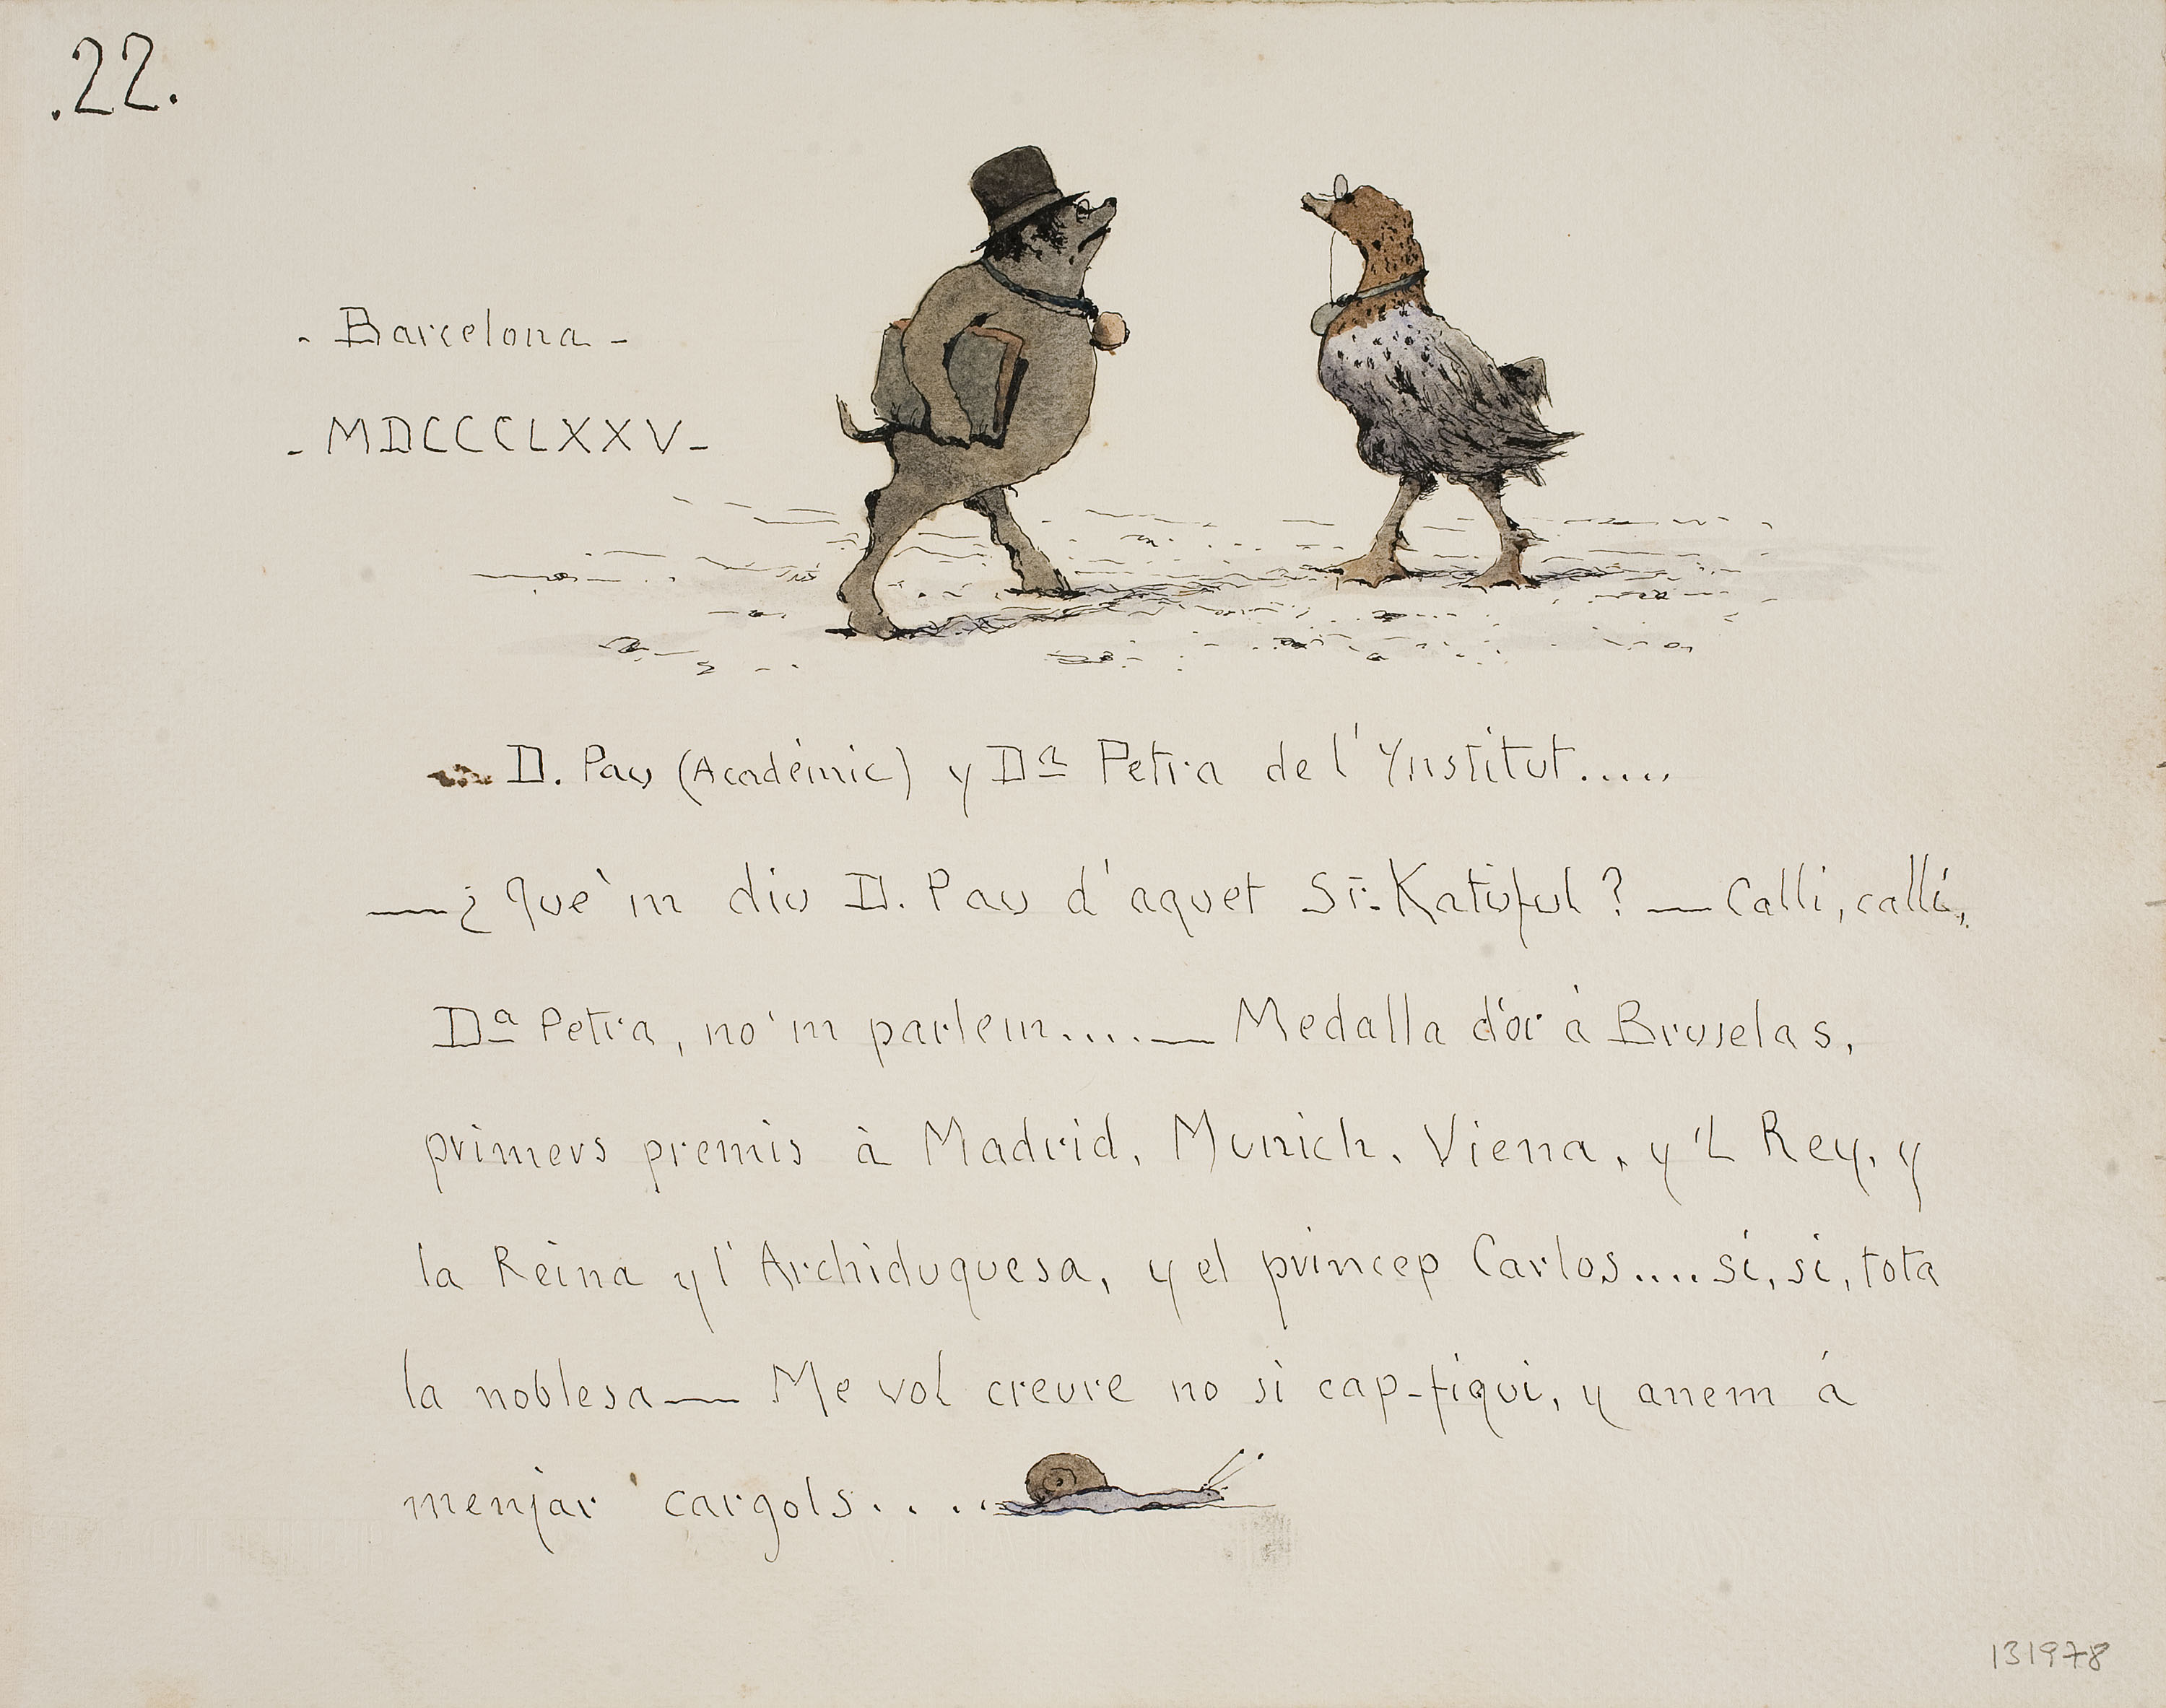 .22.
- Barcelona -
- MDCCCLXXV -
D. Pau (Académic) y Dª Petra de l'Ynstitut.....
—¿ Que'm diu D. Pau d'aquet Sr. Katúful? — Calli, calli,
Dª Petra, no'm parlem....— Medalla d'or à Bruselas,
primers premis à Madrid, Munich, Viena, y 'L Rey, y
la Reina y l'Archiduquesa, y el princep Carlos.... si, si, tota
la noblesa — Me vol creure no si cap-fiqui, y anem á
menjar cargols.....
131978